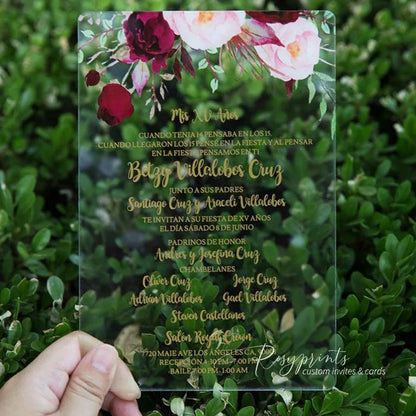 Mis XV Años
CUANDO TENIA 14 PENSABA EN LOS 15.
CUANDO LLEGARON LOS 15 PENSÉ EN LA FIESTA Y AL PENSAR
EN LA FIESTA, PENSAMOS EN TI
Betzy Villalobos Cruz
JUNTO A SUS PADRES
Santiago Cruz y Araceli Villalobos
TE INVITAN A SU FIESTA DE XV AÑOS
EL DÍA SÁBADO 8 DE JUNIO
PADRINOS DE HONOR
Andres y Josefina Cruz
CHAMBELANES
Oliver Cruz Jorge Cruz
Adrián Villalobos Gael Villalobos
Steven Castellanos
Salón Regency Crown
7720 MAIE AVE LOS ANGELES CA,
RECEPCION 4:30 P.M - 7:00 P.M
BAILE 7:00 P.M - 1:00 A.M
Rosyprints
custom invites & cards